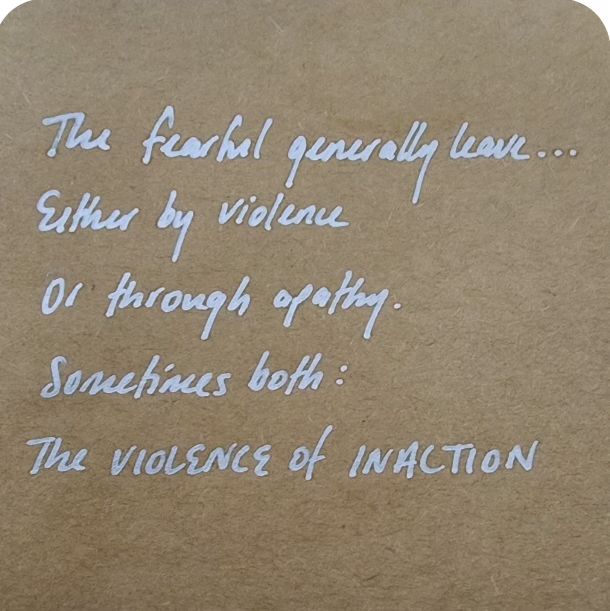 The fearful generally leave...
Either by violence
Or through apathy.
Sometimes both:
The VIOLENCE of INACTION